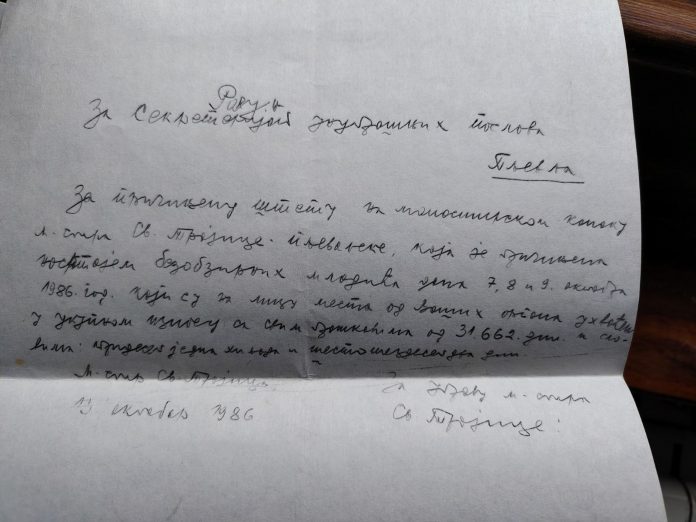 Рачун
За Секретаријат унутрашњих послова
Пљевља
За причињену штету на манастирском конаку
м-стира Св. Тројице - пљеваљске, која је причињена
од безобзирних младића дана 7, 8 и 9. октобра
1986. год. који су за лицу места од ваших органа ухваћени
у укупном износу са свим трошковима од 31.662. дин. и сло-
вима: тридесет једна хиљада и шестошездесет два дин.
М-стир Св. Тројица,
13 октобар 1986
За управу м-стира
Св. Тројице: